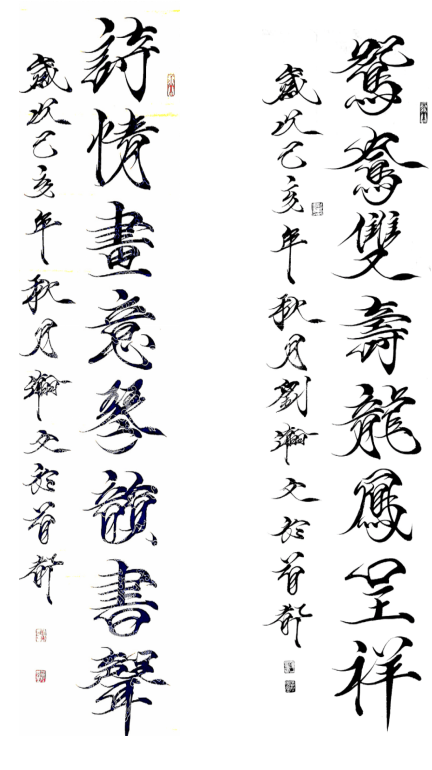 鴛鴦雙壽龍鳳呈祥
歲次己亥年秋月劉瀚文於首都
詩情畫意琴韻書聲
歲次己亥年秋月瀚文於首都